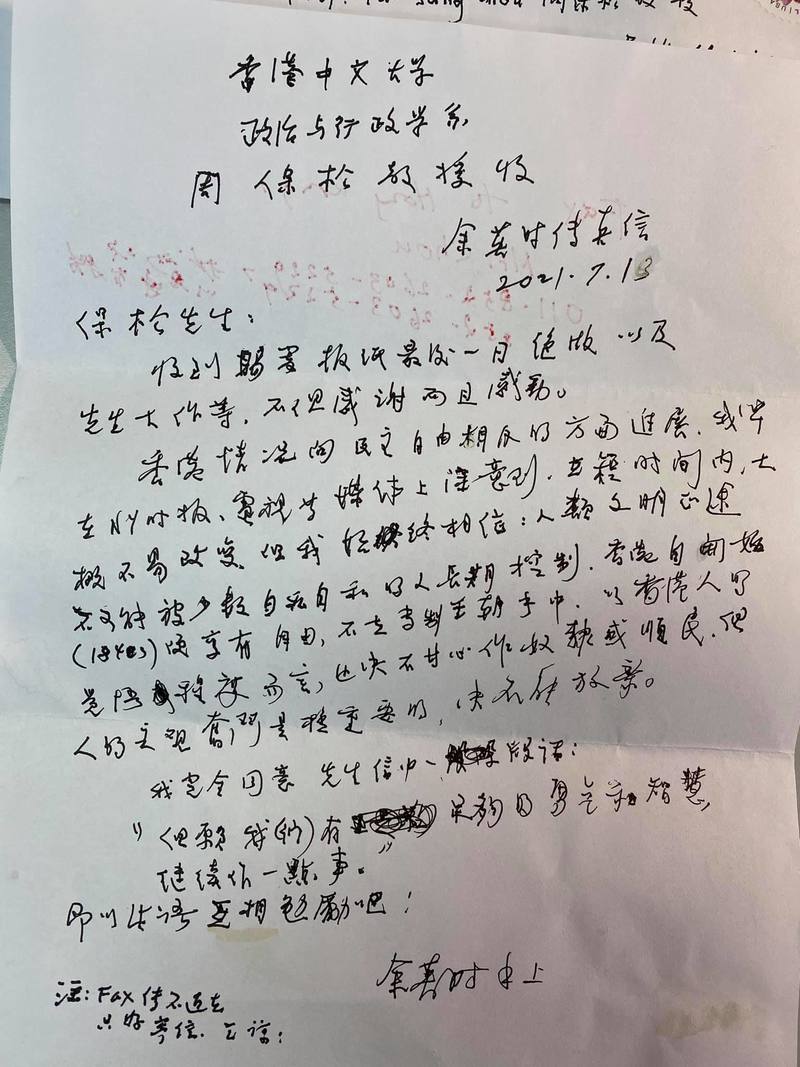 香港中文大学
政治与行政学系
周保松教授收
余英时传真信
2021.7.13
保松先生：
收到賜寄报纸最后一日绝版以及
先生大作等，不但感谢而且感动。
香港情况向民主自由相反的方面進展，我早
在NY时报、電视等媒体上注意到，在短时间内，大
概不易改变。但我始終相信：人類文明正途
不可能被少数自私自利的人長期控制，香港自開始
(1840s)便享有自由，不在专制王朝手中，以香港人的
觉悟程度而言，也决不甘心作奴隸或順民，但
人的主观奮鬥是極重要的，决不能放棄。
我完全同意先生信中一段话：
"但願我(们)有足夠的勇气和智慧，
继续作一點事。"
即以此语互相勉勵吧！
余英时手上
注：Fax传不过去
只好寄信，乞諒：